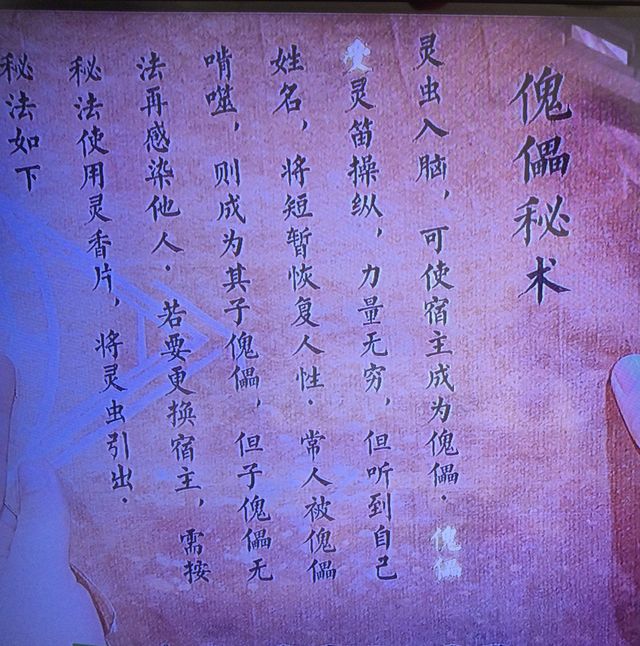 傀儡秘术
灵虫入脑，可使宿主成为傀儡．傀儡
受灵笛操纵，力量无穷，但听到自己
姓名，将短暂恢复人性．常人被傀儡
啃噬，则成为其子傀儡，但子傀儡无
法再感染他人．若要更换宿主，需按
秘法使用灵香片，将灵虫引出．
秘法如下